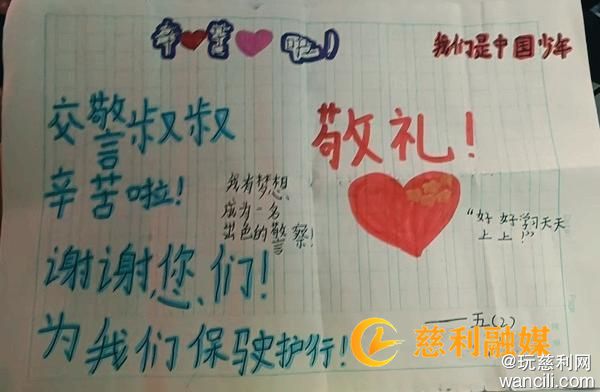 辛苦啦!
我们是中国少年
交警叔叔
辛苦啦!
谢谢您们!
为我们保驶护行!
我有梦想,
成为一名
出色的警察!
敬礼!
“好好学习天天
上上!”
——五(2)
慈利融媒
@玩慈利网
wancili.com